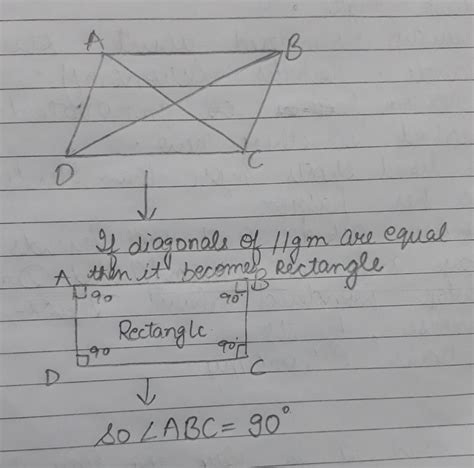 A B
D C
If diagonals of ||gm are equal
then it becomes Rectangle
A B
90 90°
Rectangle
90 90°
D C
so ∠ABC = 90°